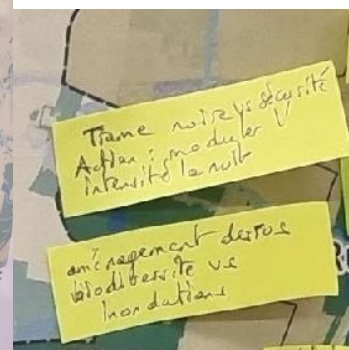 Trame noire vs sécurité
Action : moduler
intensité la nuit
aménagement
biodiversité vs
inondations